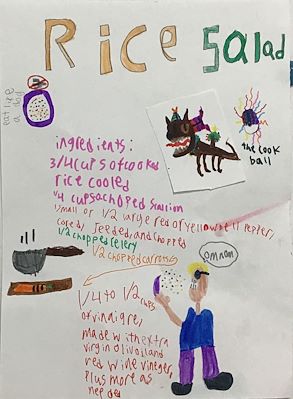 Rice Salad
eat like a
the cook
ball
ingredients:
3/4 cups of cooked
rice cooled
1/4 cups chopped scallion
1 small or 1/2 large red or yellow bell pepper,
cored, seeded, and chopped
1/2 chopped celery
1/2 chopped carrots
omnom
1/4 to 1/2 cups
of vinaigre,
made with extra
virgin olive oil and
red wine vinegar,
plus more as
needed